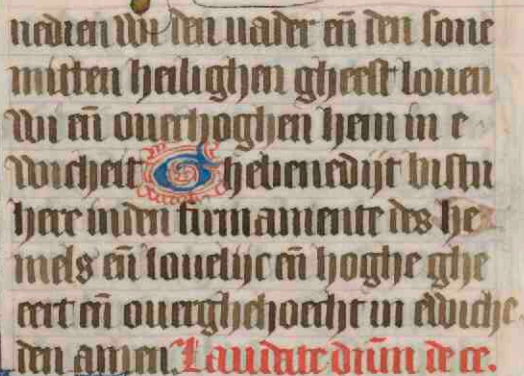 nedien wi den vader en̄ den sone
mitten heilighen gheest louen
wi en̄ ouerhoghen hem in e
wicheit Ghebenedijt bistu
here inden firmamente des he
mels en̄ louelijc en̄ hoghe ghe
eert en̄ ouerghehoecht in ewiche
den amen. Laudate dn̄m de ce.